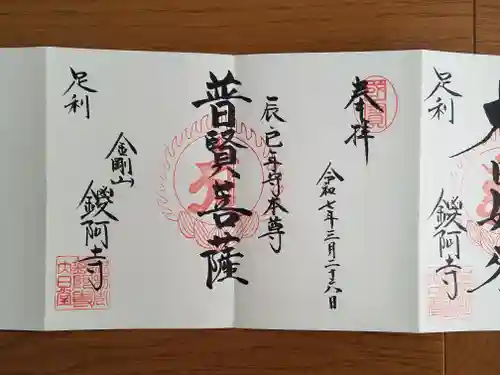 奉拝
令和七年三月二十八日
辰・巳年守本尊
普賢菩薩
足利
金剛山
鑁阿寺
足利
鑁阿寺